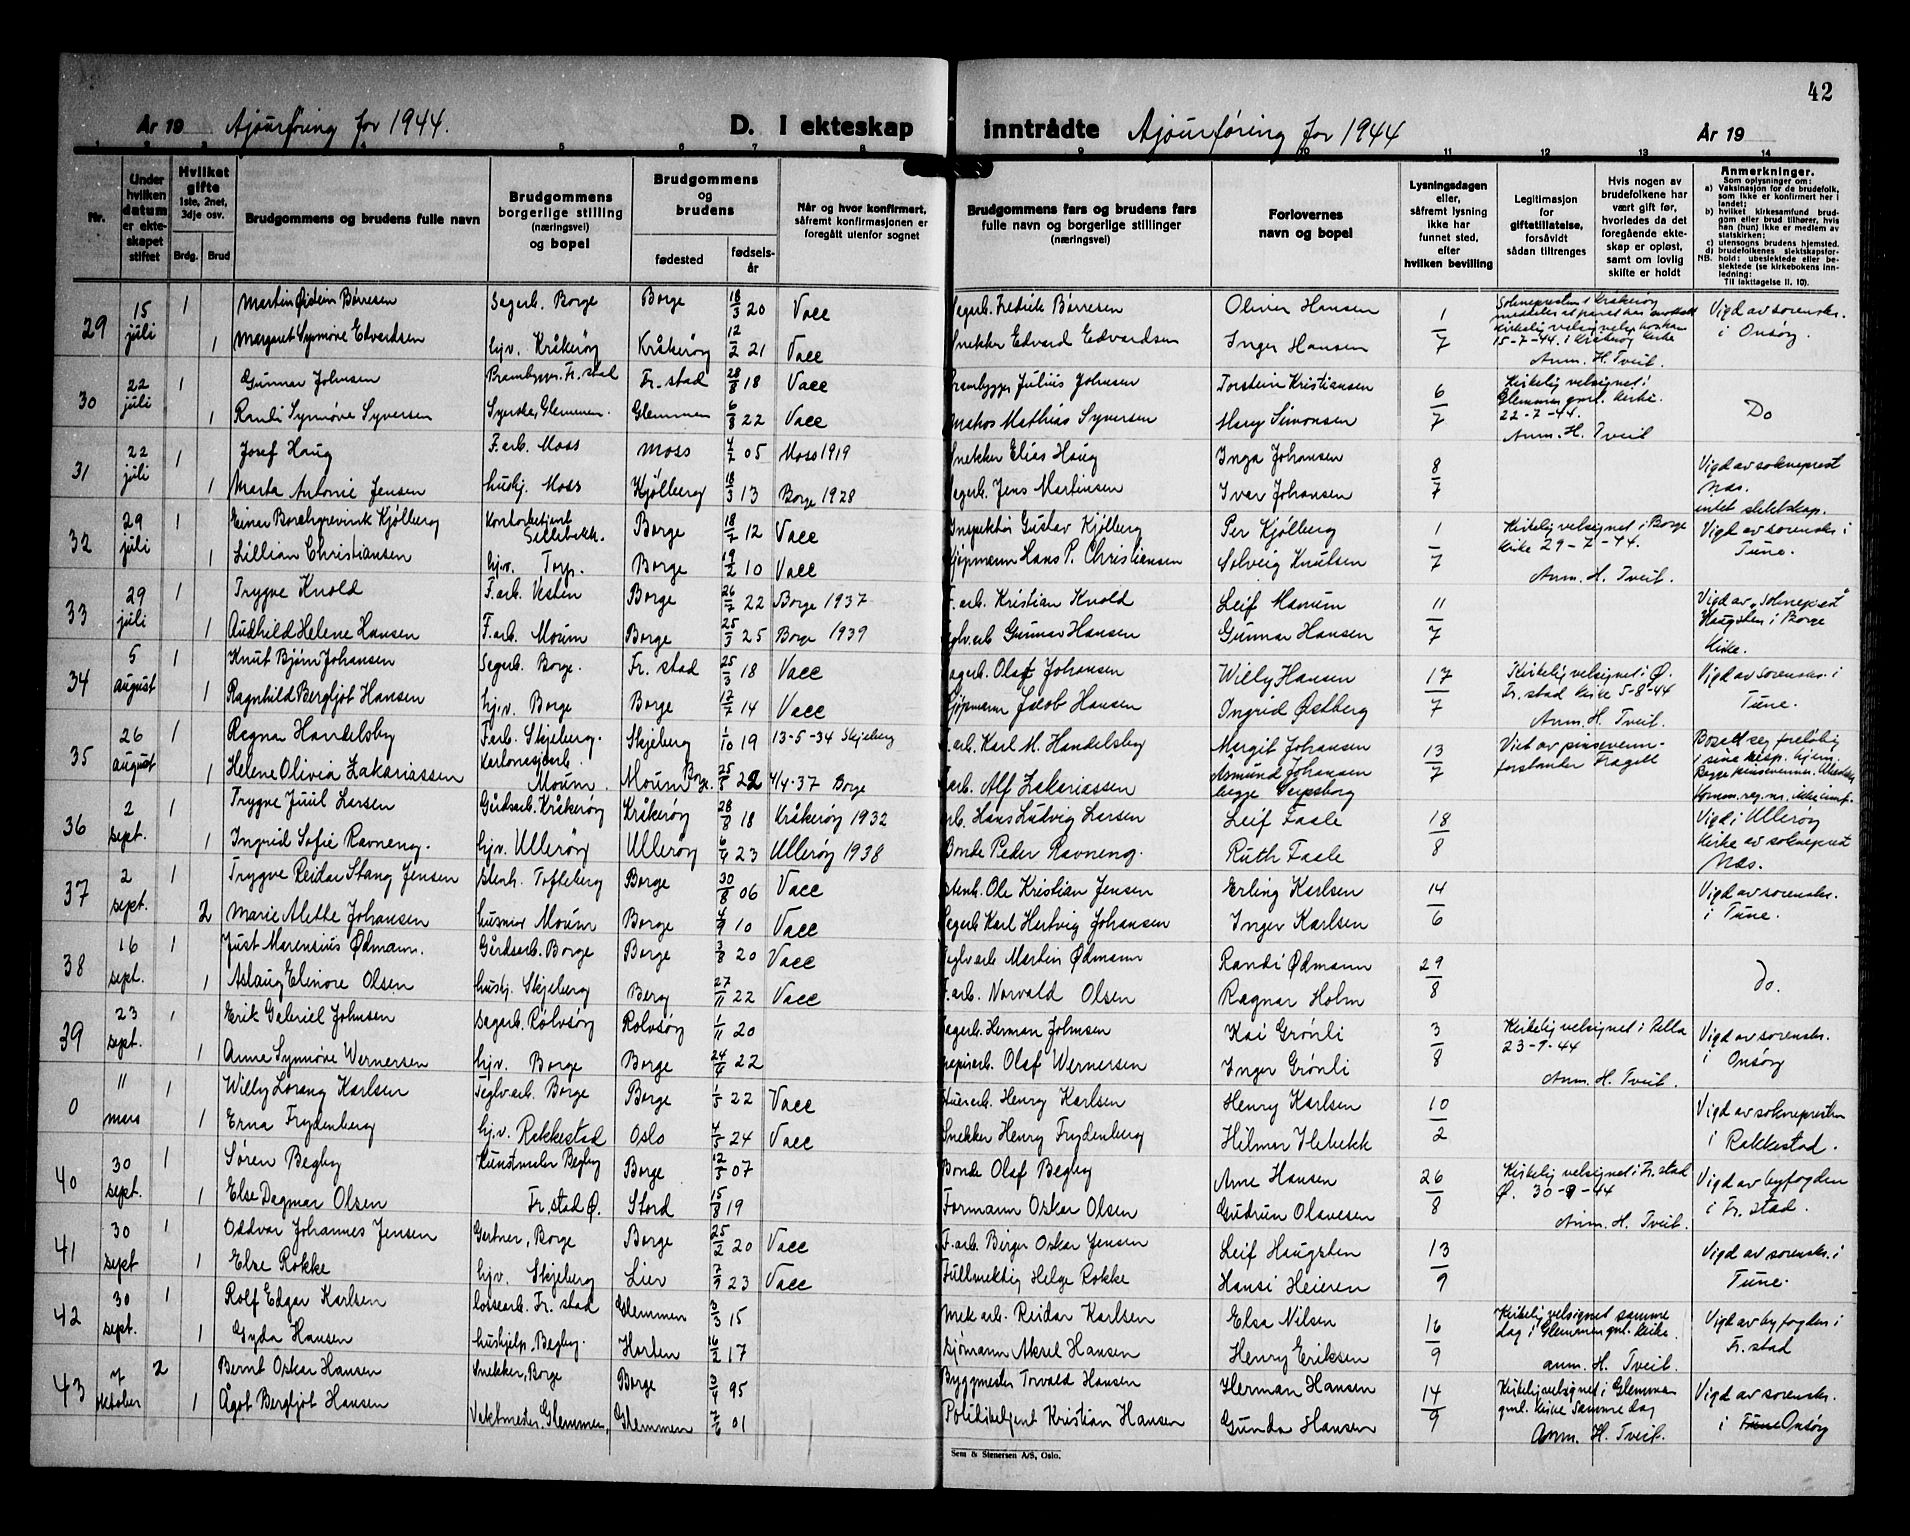 42
År 19 Ajourføring for 1944. D. I ekteskap inntrådte Ajourføring for 1944 År 19
1 2 3 4 5 6 7 8 9 10 11 12 13 14
Nr.
Under hvilken datum er ekteskapet stiftet
Hvilket gifte 1ste, 2net, 3dje osv.
Brdg. Brud
Brudgommens og brudens fulle navn
Brudgommens borgerlige stilling (næringsvei) og bopel
Brudgommens og brudens
fødested
fødselsår
Når og hvor konfirmert, såfremt konfirmasjonen er foregått utenfor sognet
Brudgommens fars og brudens fars fulle navn og borgerlige stillinger (næringsvei)
Forlovernes navn og bopel
Lysningsdagen eller, såfremt lysning ikke har funnet sted, efter hvilken bevilling
Legitimasjon for giftetillatelse, forsåvidt sådan tiltrenges
Hvis nogen av brudefolkene har vært gift før, hvorledes da det foregående ekteskap er opløst, samt om lovlig skifte er holdt
Anmerkninger.
Som oplysninger om:
a) Vaksinasjon for de brudefolk, som ikke er konfirmert her i landet;
b) hvilket kirkesamfund brudgom eller brud tilhører, hvis han (hun) ikke er medlem av statskirken;
c) utensogns brudens hjemsted.
d) brudefolkenes slektskapsforhold; ubeslektede eller beslektede (se kirkebokens innledning:
NB. Til iakttagelse II. 10).
29 15 juli 1 Martin Øistein Børresen Sagarb. Borge Borge 18/3 20 Vacc Sagarb. Fredrik Børresen Oliver Hansen 1/7 Soknepresten i Kråkerøy meddeler at paret har Vigd av sorenskr.
1 Margaret Synnøve Edvardsen hjv. Kråkerøy Kråkerøy 12/2 21 Vacc Snekker Edvard Edvardsen Inger Hansen kirkelig velsignelse 15-7-44 i Kråkerøy kirke Anm. H. Tveit. i Onsøy.
30 22 juli 1 Gunnar Johnsen Fr. stad Fr. stad 28/8 18 Vacc Julius Johnsen Torstein Kristiansen 6/7 Kirkelig velsignet i Do
1 Randi Synnøve Syversen Syerske, Glemmen. Glemmen 6/8 22 Vacc Mathias Syversen Harry Simonsen Glemmen gml. kirke. 22-7-44. Anm. H. Tveit
31 22 juli 1 Josef Haug F.arb. Moss Moss 4/7 05 Moss 1919 Snekker Elias Haug Inga Johansen 8/7 Vigd av sokneprest
1 Marta Antonie Jensen hushj. Moss Kjølberg 18/3 13 Borge 1928 Sagarb. Jens Martinsen Ivar Johansen Næs. intet slektskap.
32 29 juli 1 Einar Borchgrevink Kjølberg Kontorbetjent Borge 18/7 12 Vacc Inspektør Gustav Kjølberg Per Kjølberg 1/7 Kirkelig velsignet i Borge Vigd av sorenskr. i
1 Lillian Christiansen hjv. Torp. Borge 19/2 10 Vacc Kjøpmann Hans P. Christiansen Solveig Knutsen kirke 29-7-44. Anm. H. Tveit. Tune.
33 29 juli 1 Trygve Knold F.arb. Vesten Borge 26/7 22 Borge 1937 F.arb. Kristian Knold Leif Manum 11/7 Vigd av "Sokneprest"
1 Audhild Helene Hansen F.arb. Moum Borge 25/3 25 Borge 1939 Teglv.arb Gunnar Hansen Gunnar Hansen Haugsten i Borge kirke.
34 5 august 1 Knut Bjørn Johansen Sagarb. Borge. Fr. stad 25/3 18 Vacc Sagarb. Olaf Johansen Willy Hansen 17/7 Kirkelig velsignet i Ø. Vigd av sorenskr. i
1 Ragnhild Bergljot Hansen hjv. Borge Borge 12/7 14 Vacc Kjøpmann Jacob Hansen Ingrid Østberg Fr. stad kirke 5-8-44 Anm. H. Tveit. Tune.
35 26 august 1 Ragnar Handelsby F.arb. Skjeberg. Skjeberg 1/10 19 13-5-34 Skjeberg F.arb. Karl M. Handelsby Margit Johansen 13/7 Viet av pinsevenn- Bosett seg foreløbig
1 Helene Olivia Zakariassen Moum. Moum Borge. 25/5 22 4/4-37 Borge F.arb. Alf Zakariassen Asmund Johansen begge Sarpsborg forstander Fragell i sine resp. hjem. Begge pinsevenner.
36 2 sept. 1 Trygve Juul Larsen Gårdsarb. Kråkerøy Kråkerøy 28/8 18 Kråkerøy 1932 arb. Hans Ludvig Larsen Leif Faale 18/8 Vigd i Ullerøy
1 Ingrid Sofie Ravneng. hjv. Ullerøy Ullerøy 6/4 23 Ullerøy 1938 Bonde Peder Ravneng. Ruth Faale kirke av sokneprest Næs.
37 2 sept. 1 Trygve Reidar Stang Jensen stenh. Tofteberg Borge 30/8 06 Vacc stenh. Ole Kristian Jensen Erling Karlsen 14/6 Vigd av sorenskr.
2 Marie Alette Johansen husmor Moum Borge 4/9 10 Vacc Sagarb Karl Hertvig Johansen Inger Karlsen i Tune.
38 16 sept. 1 Just Marensius Ødmann. Gårdsarb. Borge Borge 3/8 20 Vacc Teglv.arb Martin Ødmann Randi Ødmann 29/8 Do.
1 Aslaug Elinore Olsen hushj. Skjeberg Berg 27/11 22 Vacc F.arb. Norvald Olsen Ragnar Holm
39 23 sept. 1 Erik Gabriel Johnsen Sagarb. Rolvsøy Rolvsøy 1/11 20 Sagarb. Herman Johnsen Kai Grønli 3/8 Kirkelig velsignet i Vigd av sorenskr.
1 Anne Synnøve Wernersen hjv. Borge Borge 24/4 22 Papirarb. Olaf Wernersen Inger Grønli 23-9-44 Anm. H. Tveit. i Onsøy
0 11 mars 1 Willy Lorang Karlsen Teglv.arb. Borge Borge 1/5 22 Vacc Henry Karlsen Henry Karlsen 10/2 Vigd av soknepresten
1 Erna Frydenberg hj.v. Rakkestad Oslo 4/5 24 Vacc Snekker Henry Frydenberg Hilmar i Rakkestad.
40 30 sept. 1 Søren Begby Kunstmaler Begby Borge 12/3 07 Bonde Olaf Begby Arne Hansen 26/8 Kirkelig velsignet i Fr. stad Vigd av byfogden
1 Else Dagmar Olsen Fr. stad Ø. Stord 15/8 19 Formann Oskar Olsen Gudrun Olavesen Ø. 30-9-44 Anm. H. Tveit. i Fr. stad.
41 30 sept 1 Oddvar Johannes Jensen Gartner, Borge Borge 25/2 20 Vacc F.arb. Birger Oskar Jensen Leif Haugsten 13/9 Vigd av sorenskr. i
1 Else Rokke hjv. Skjeberg Lier 7/9 23 Vacc Fullmektig Helge Rokke Hansi Heieren Tune.
42 30 sept. 1 Rolf Edgar Karlsen Lossearb. Fr. stad Glemmen 3/3 15 Mek arb. Reidar Karlsen Elsa Nilsen 16/9 Kirkelig velsignet samme Vigd av byfogden i
1 Gyda Hansen hushjelp, Begby. Horten 16/2 17 Sjømann Aksel Hansen Henry Eriksen dag i Glemmen gml. kirke. anm. H. Tveit. Fr. stad
43 7 oktober 2 Bernt Oskar Hansen Snekker, Borge Borge 3/4 95 Byggmester Torvald Hansen Herman Hansen 14/9 Kirkelig velsignet i Glemmen Vigd av sorenskr.
1 Ågot Bergljot Hansen Vaktmester, Glemmen, Glemmen 7/6 01 Politibetjent Kristian Hansen Gunda Hansen gml. kirke samme dag Anm. H. Tveit. i Tune Onsøy
Sem & Stenersen A/S, Oslo.